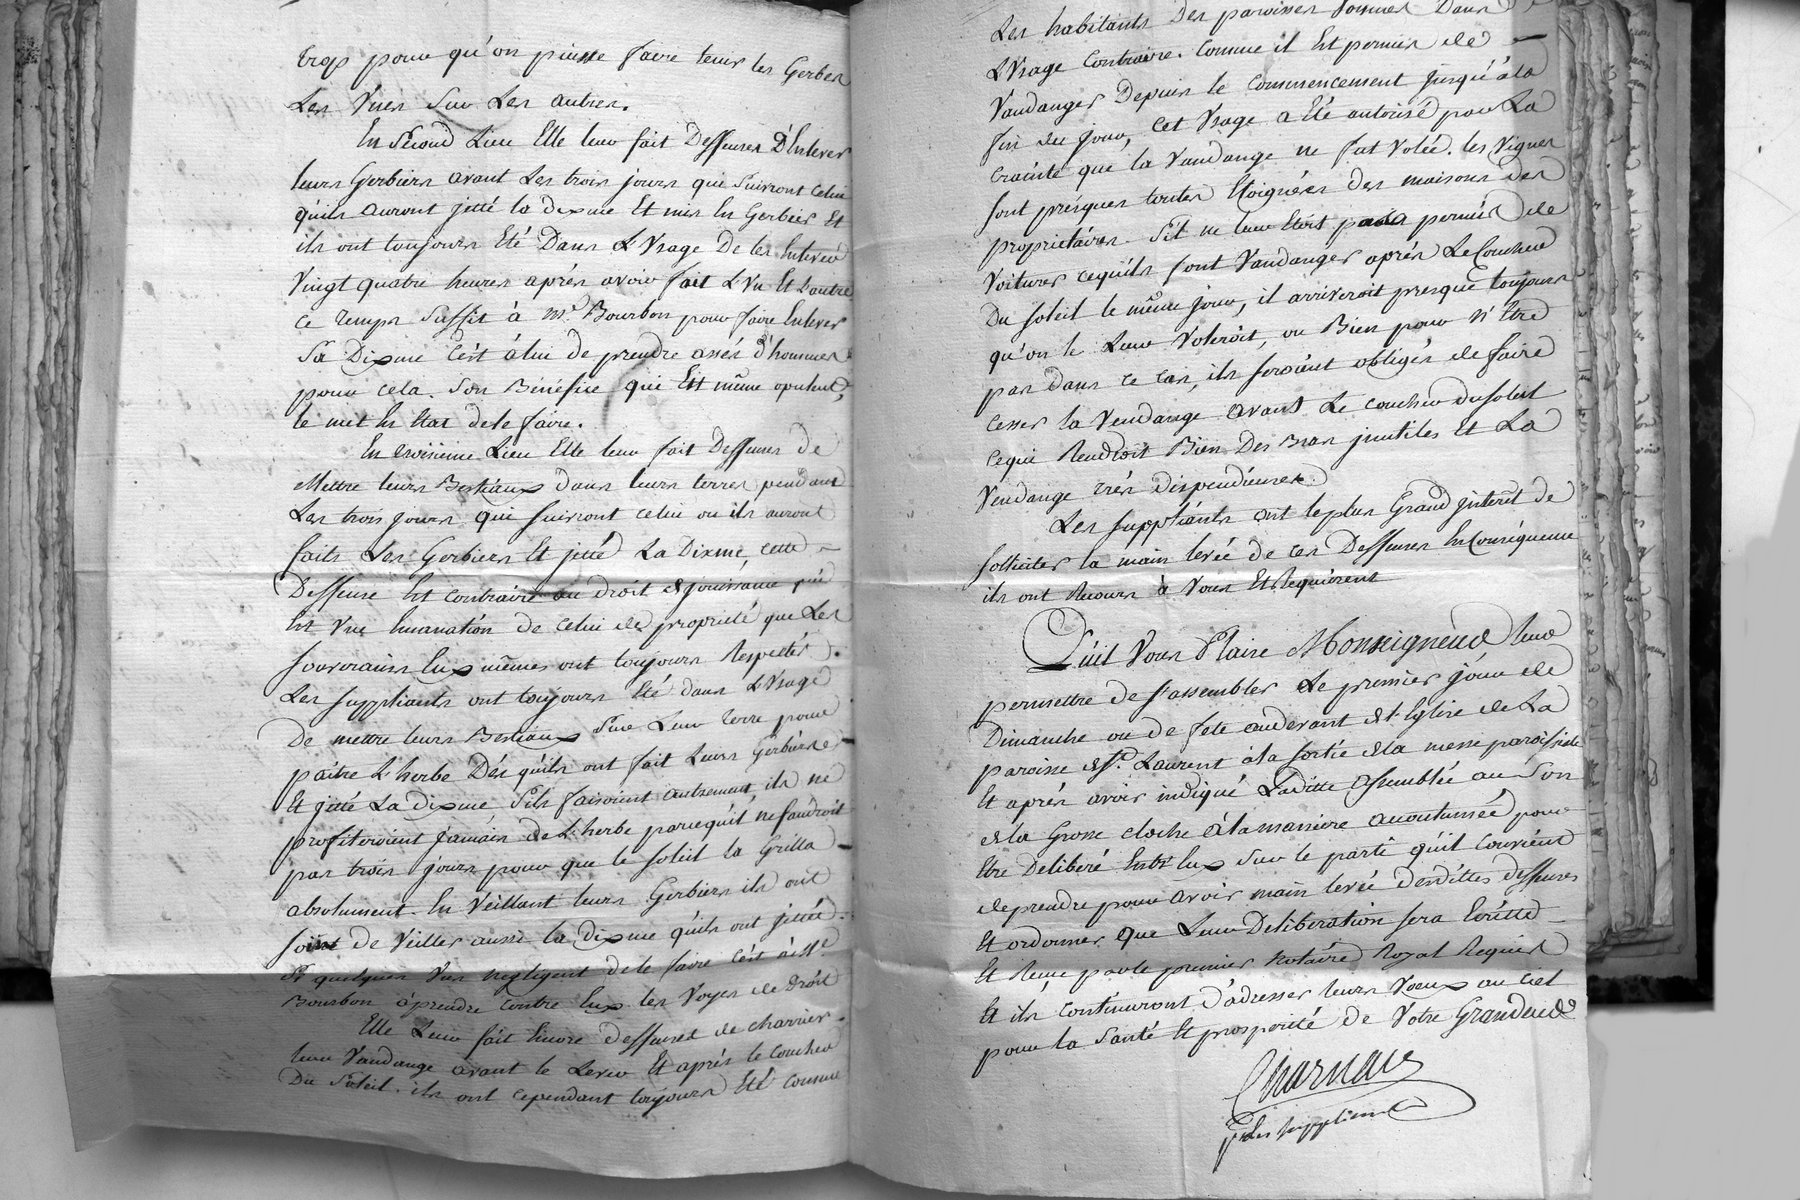 trop pour qu'on puisse faire tenir les Gerbes
Les Unes sur Les autres.
En Second Lieu Elle leur fait Deffenses D'Enlever
leurs Gerbiers avant Les trois jours qui Suivront celui
qu'ils auront jetté la dixme Et mis En Gerbier Et
ils ont toujours Eté Dans L'Usage De les Enlever
Vingt quatre heures après avoir fait L'Un Et L'autre
ce temps suffit à Mr. Bourbon pour faire Enlever
Sa Dixme C'est à lui de prendre assés d'hommes
pour cela. Son Bénéfice qui Est même opulent,
le met En Etat de le faire.
En troisième Lieu Elle leur fait Deffenses de
Mettre leurs Bestiaux dans leurs terres pendant
Les trois jours qui suivront celui ou ils auront
faits Les Gerbiers Et jetté La Dixme, cette
Deffense Est contraire au droit de jouissance qui
Est Une Emanation de celui de propriété que Les
souverains Eux mêmes ont toujours Respectés.
Les suppliants ont toujours Eté dans L'Usage
De mettre leurs Bestiaux sur Leur terre pour
paitre L'herbe Dès qu'ils ont fait Leurs Gerbiers
Et jetté La dixme S'ils faisoient autrement ils ne
profiteroient jamais de L'herbe parcequ'il ne faudroit
pas trois jours pour que le soleil la Grilla
absolument. En Veillant leurs Gerbiers ils ont
soin de Veiller aussi la dixme qu'ils ont jettée.
Si quelques Uns négligent de le faire c'est à Mr.
Bourbon à prendre contre Eux les Voyes de Droit
Elle Leur fait Encore deffenses de charrier
leur Vandange avant le Lever Et après le coucher
Du Soleil. ils ont cependant toujours Eté comme
Les habitants Des paroisses Dans
L'Usage Contraire. Comme il Est permis de
Vandanger Depuis le commencement jusqu'à la
fin du jour, cet Usage a Eté autorisé par La
crainte que la Vandange ne fut Volée. les Vignes
sont presques toutes Eloignées des maisons des
proprietaires. S'il ne leur Etoit pas permis de
Voiturer cequ'ils font Vandanger après Le Coucher
Du Soleil le même jour, il arriveroit presque toujours
qu'on le Leur Voleroit, ou Bien pour N'Etre
pas dans ce cas, ils seroient obligés de faire
cesser la Vendange avant Le coucher du soleil
cequi Rendroit Bien Des Bras inutiles Et La
Vendange très dispendieuse.
Les suppliants ont le plus Grand interêt de
solliciter la main levée de ces Deffenses En Conséquence
ils ont Recours à Vous Et Requièrent
Qu'il Vous Plaise Monseigneur leur
permettre de s'assembler Le premier jour de
Dimanche ou de fête au devant de l'Eglise de La
paroisse de St. Laurent à la sortie de la messe paroissiale
Et après avoir indiqué Laditte assemblée au Son
de la Grosse cloche à la manière accoutumée pour
Etre Deliberé Entr'Eux sur le parti qu'il convient
de prendre pour avoir main levée desdittes deffenses
Et ordonner que Leur Deliberation sera Ecritte
Et Reçue par le premier Notaire Royal Requis
Et ils continuront d'adresser leurs Voeux au ciel
pour la Santé Et prosperité de Votre Grandeur
Charnau
pr. les suppliants